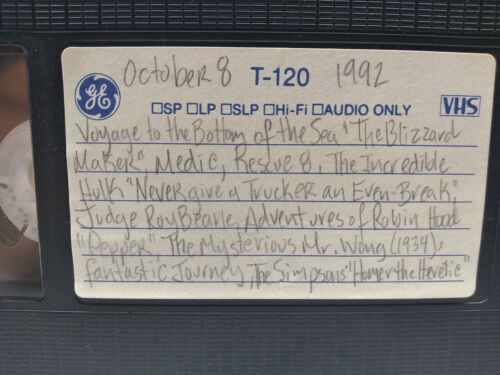 October 8 T-120 1992
GE
□SP □LP □SLP □Hi-Fi □AUDIO ONLY VHS
Voyage to the Bottom of the Sea "The Blizzard
Maker", Medic, Rescue 8, The Incredible
Hulk "Never Give a Trucker an Even Break",
Judge Roy Beane, Adventures of Robin Hood
"Pepper", The Mysterious Mr. Wong (1934),
Fantastic Journey, The Simpsons "Homer the Heretic"